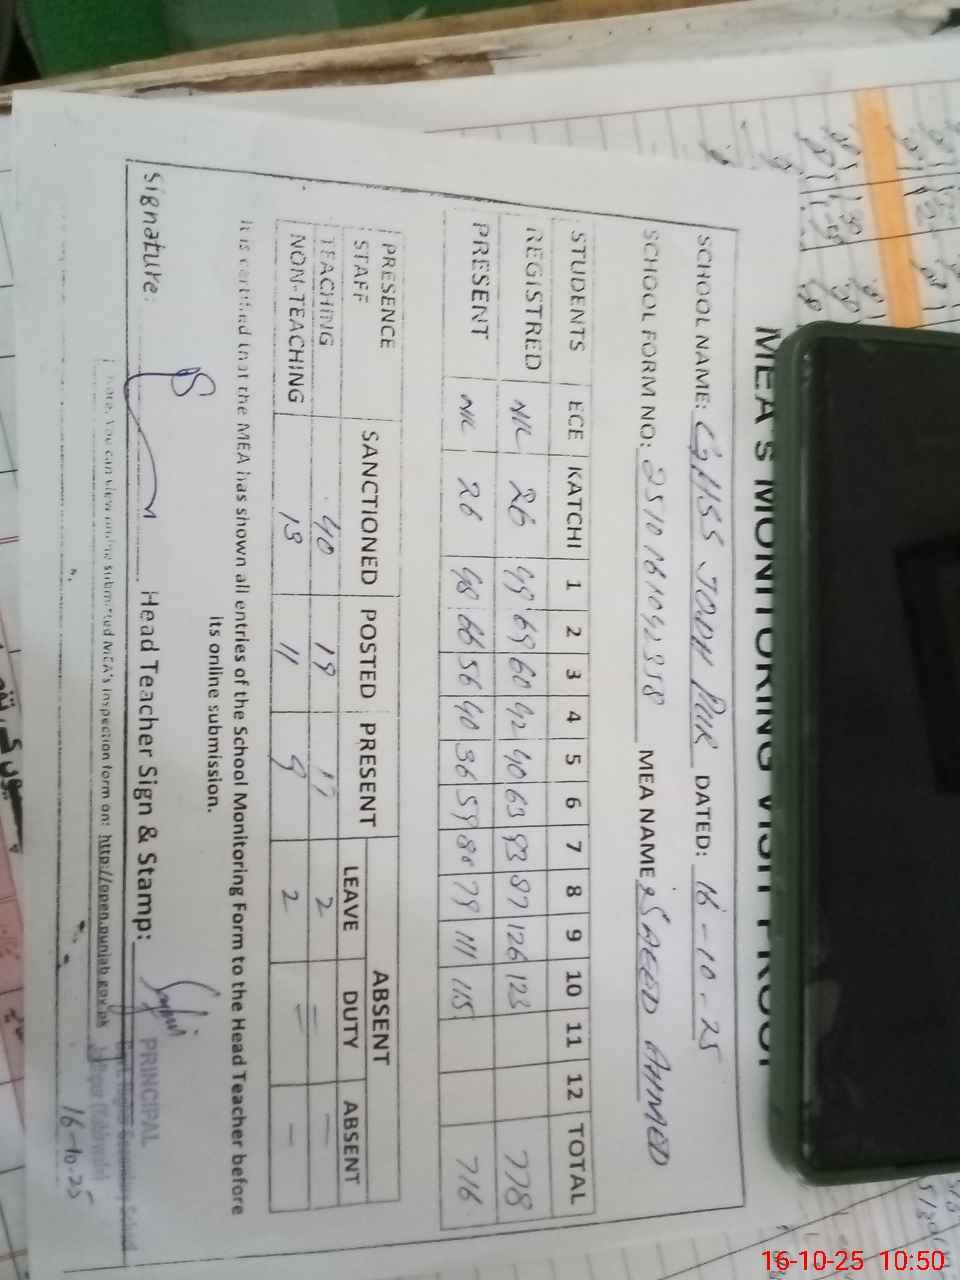 MEA'S MONITORING VISIT PROOF
SCHOOL NAME: GHSS JODH PUR DATED: 16-10-25
SCHOOL FORM NO: 2510161092358 MEA NAME: SAEED AHMED
STUDENTS ECE KATCHI 1 2 3 4 5 6 7 8 9 10 11 12 TOTAL
REGISTRED NIL 26 49 69 60 42 40 63 93 87 126 123 778
PRESENT NIL 26 48 66 56 40 36 59 80 79 111 115 716
PRESENCE STAFF SANCTIONED POSTED PRESENT ABSENT
LEAVE DUTY ABSENT
TEACHING 40 19 17 2 = -
NON-TEACHING 13 11 9 2 = -
It is certified that the MEA has shown all entries of the School Monitoring Form to the Head Teacher before
its online submission.
Signature: Head Teacher Sign & Stamp:
PRINCIPAL
Govt. Higher Secondary School
Note. You can view online submitted MEA's inspection form on: http://open.punjab.gov.pk
16-10-25
16-10-25 10:50